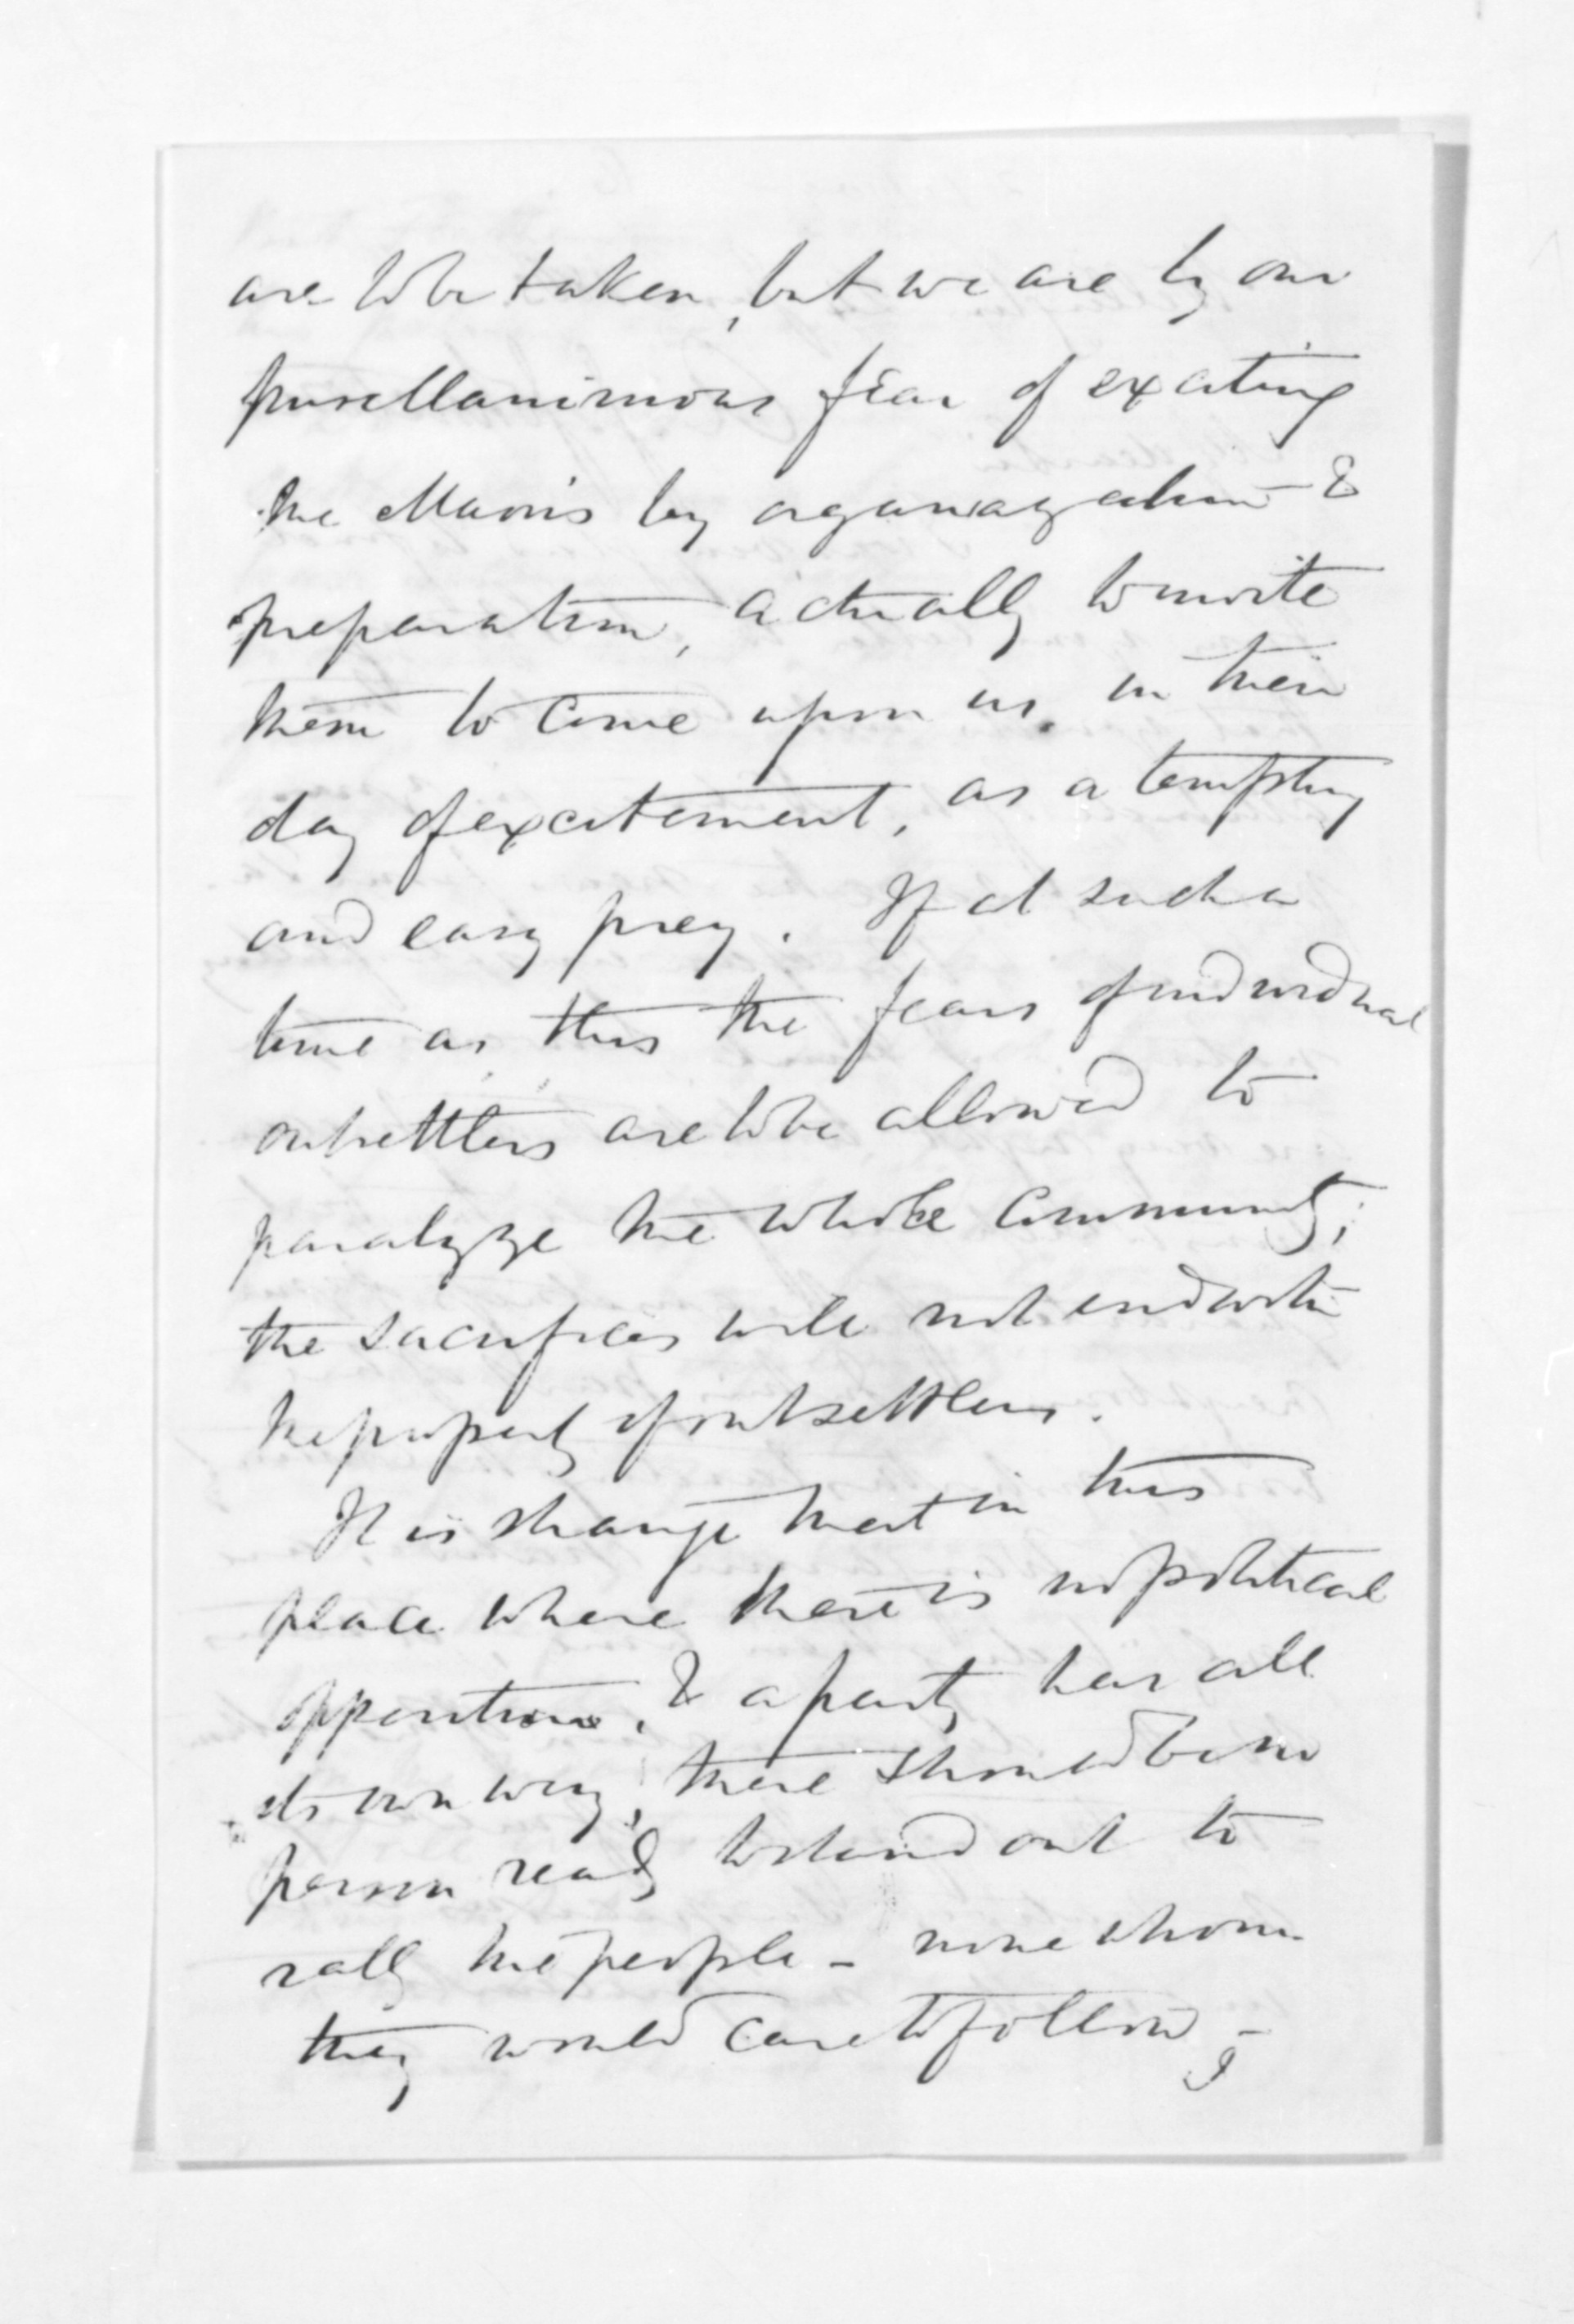 are to be taken, but we are by our
pusillanimous fear of exciting
the Maoris by organization &
preparation, actually to invite
them to come upon us, in their
day of excitement, as a tempting
and easy prey. If at such a
time as this the fears of individual
outsettlers are to be allowed to
paralyze the whole community;
the sacrifices will not end with
the property of outsettlers.
It is strange that in this
place where there is no political
opposition, & a party has all
its own way, there should be no
person ready to stand out to
rally the people - none whom
they would care to follow, -